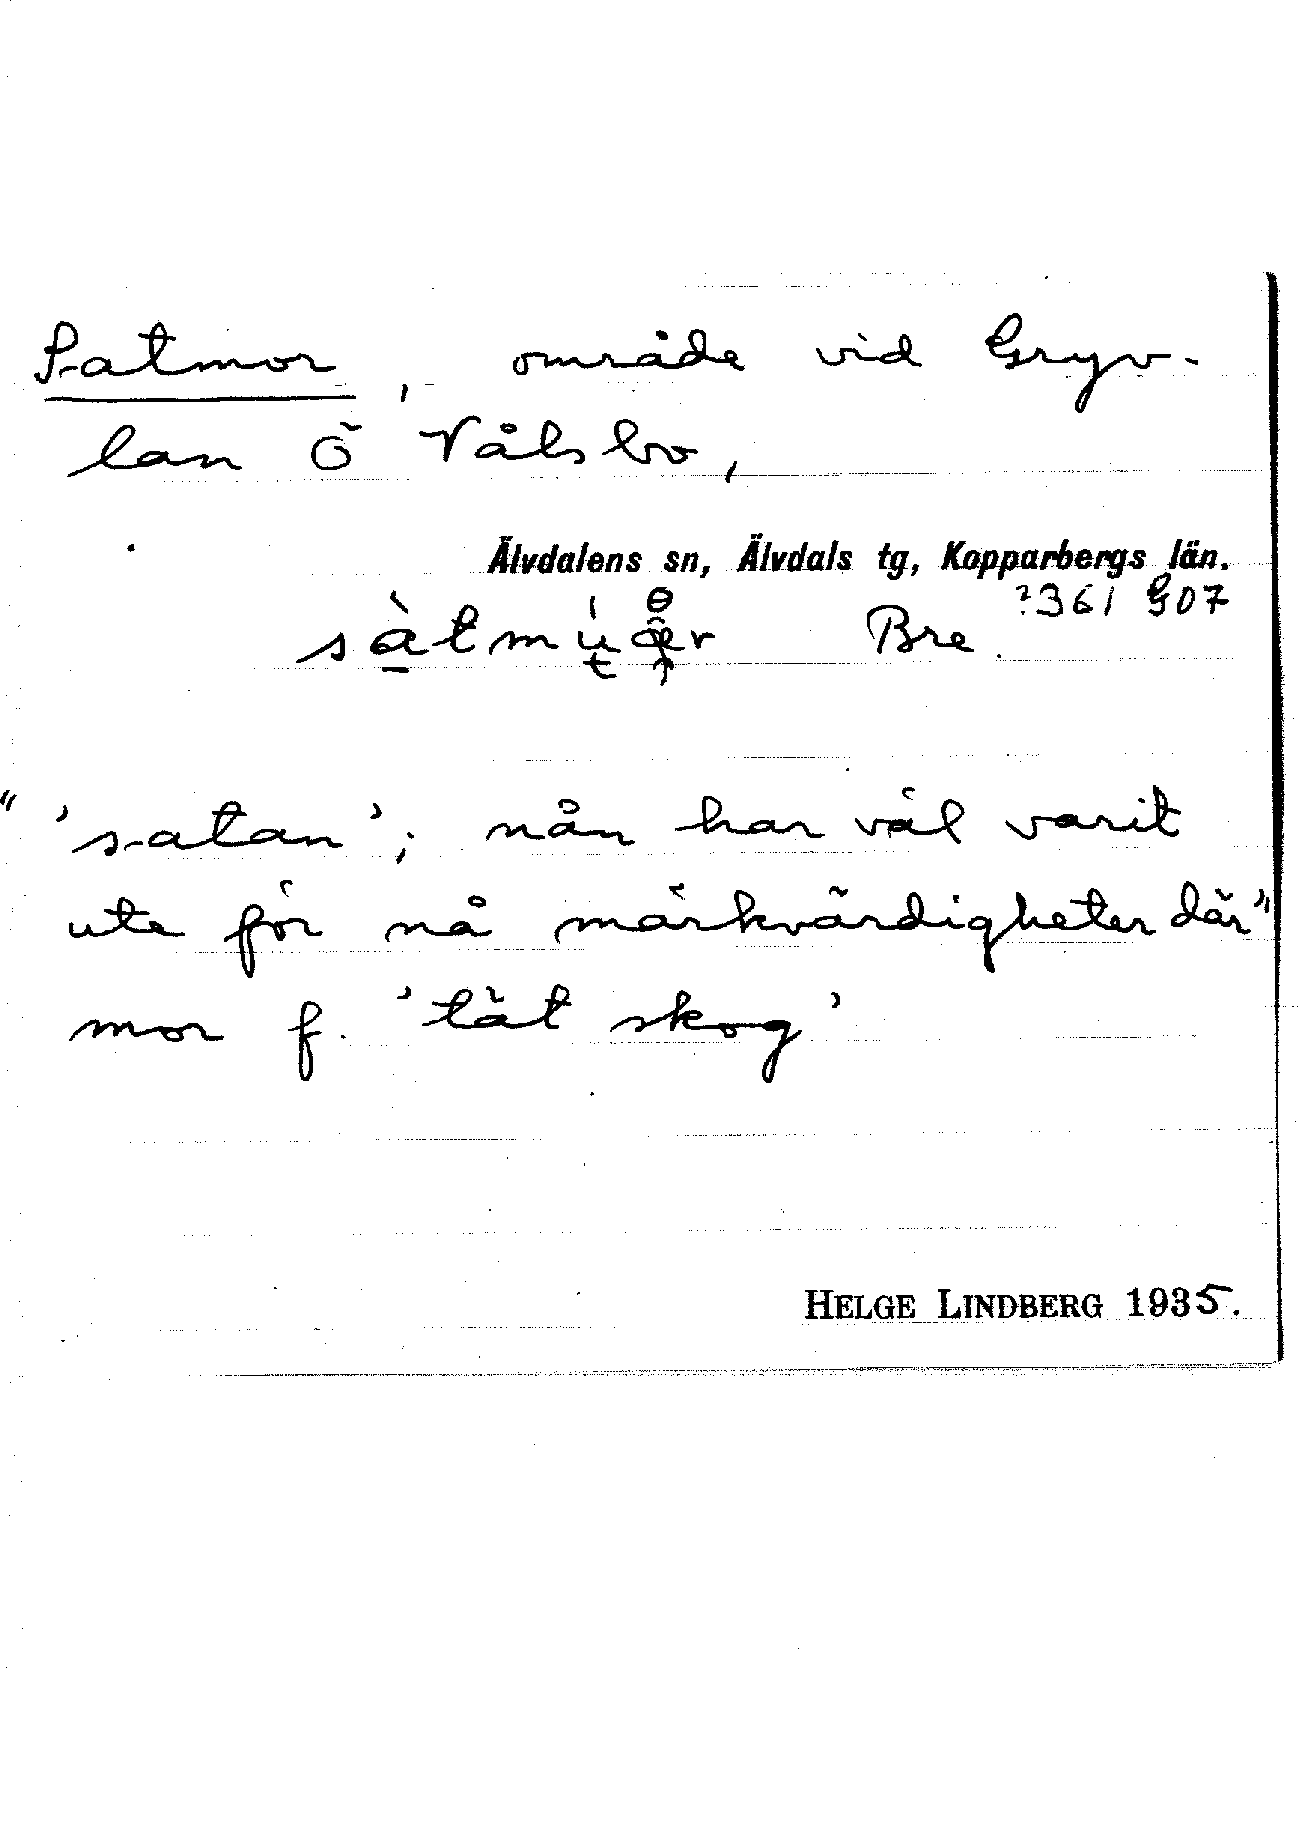 Satmor, område vid Gryv-
lan Ö Vålsbo,
Älvdalens sn, Älvdals tg, Kopparbergs län.
?361 907
Bre.
"'satan'; nån har väl varit
ute för nå märkvärdigheter där"
mor f. 'tät skog'
HELGE LINDBERG 1935.